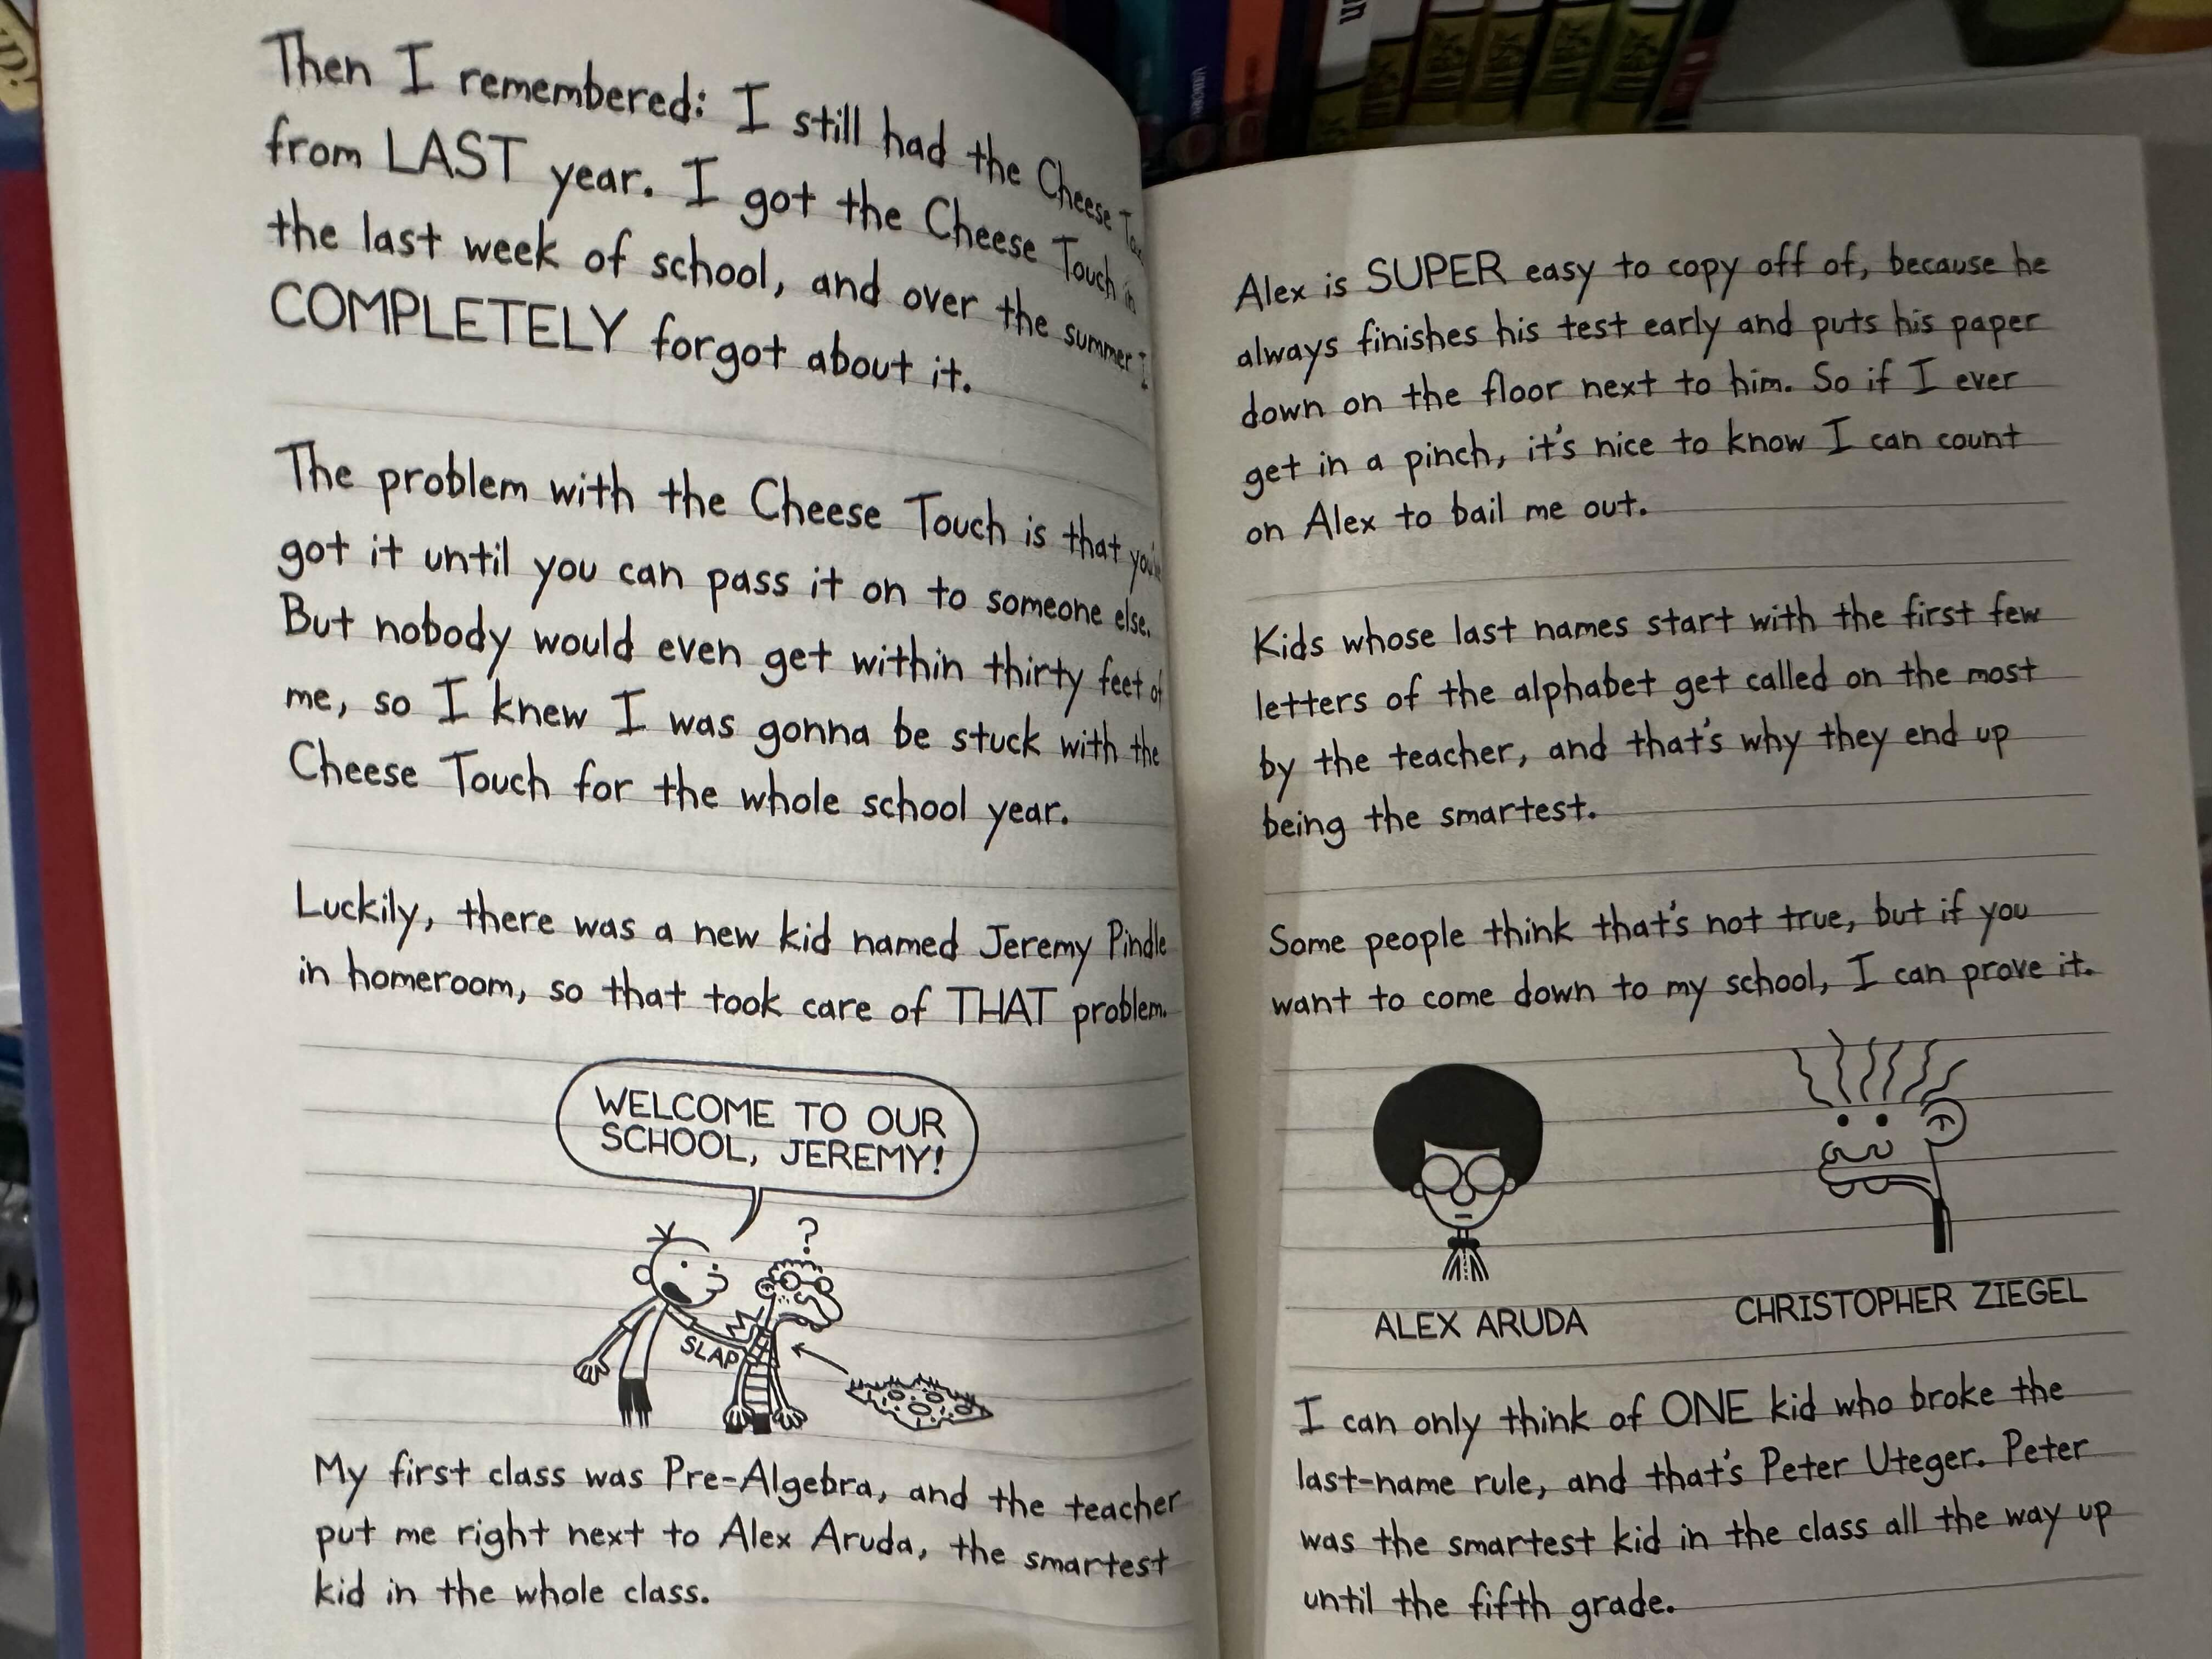 Then I remembered: I still had the Cheese
from LAST year. I got the Cheese Touch in
the last week of school, and over the summer I
COMPLETELY forgot about it.
The problem with the Cheese Touch is that you've
got it until you can pass it on to someone else.
But nobody would even get within thirty feet of
me, so I knew I was gonna be stuck with the
Cheese Touch for the whole school year.
Luckily, there was a new kid named Jeremy Pindle
in homeroom, so that took care of THAT problem.
WELCOME TO OUR
SCHOOL, JEREMY!
?
SLAP
My first class was Pre-Algebra, and the teacher
put me right next to Alex Aruda, the smartest
kid in the whole class.
Alex is SUPER easy to copy off of, because he
always finishes his test early and puts his paper
down on the floor next to him. So if I ever
get in a pinch, it's nice to know I can count
on Alex to bail me out.
Kids whose last names start with the first few
letters of the alphabet get called on the most
by the teacher, and that's why they end up
being the smartest.
Some people think that's not true, but if you
want to come down to my school, I can prove it.
ALEX ARUDA
CHRISTOPHER ZIEGEL
I can only think of ONE kid who broke the
last-name rule, and that's Peter Uteger. Peter
was the smartest kid in the class all the way up
until the fifth grade.